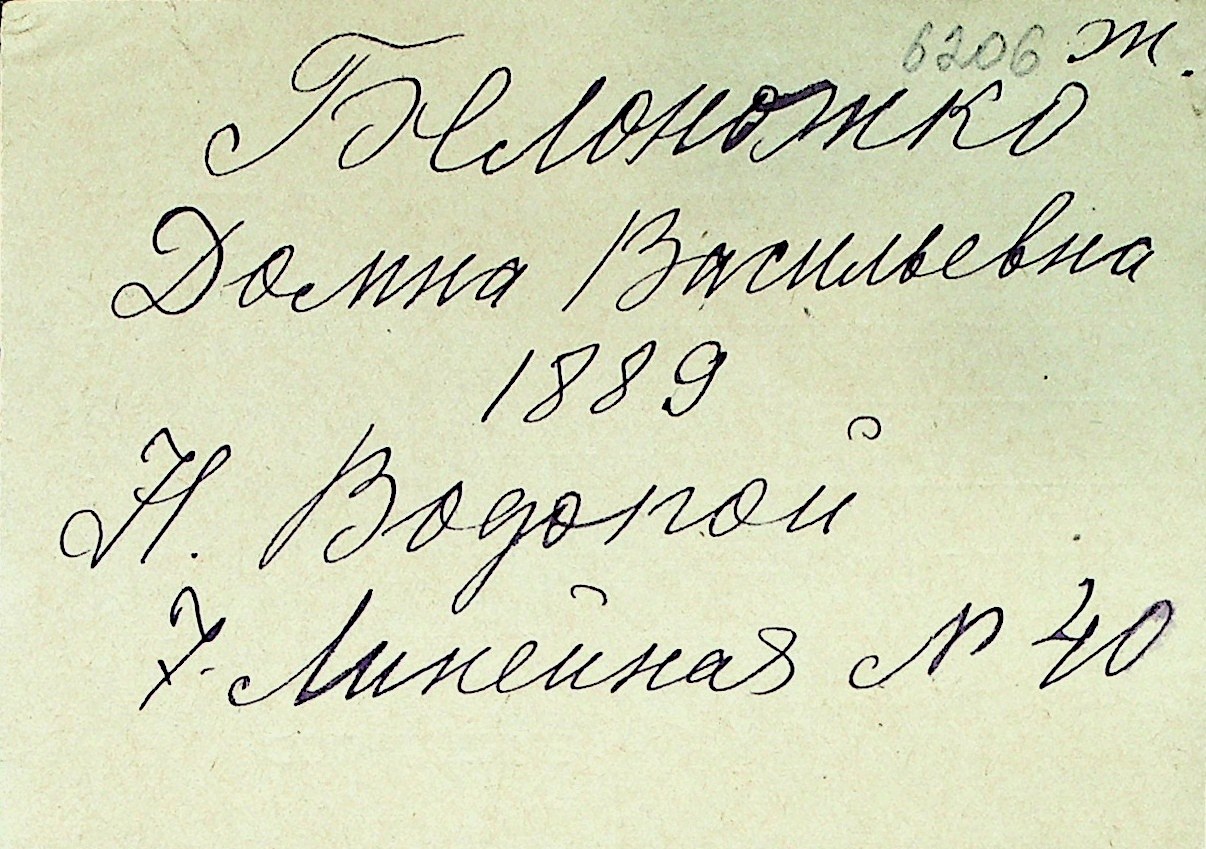 6206 ж.
Белоножко
Домна Васильевна
1889
Н. Водопой
7 Линейная № 40